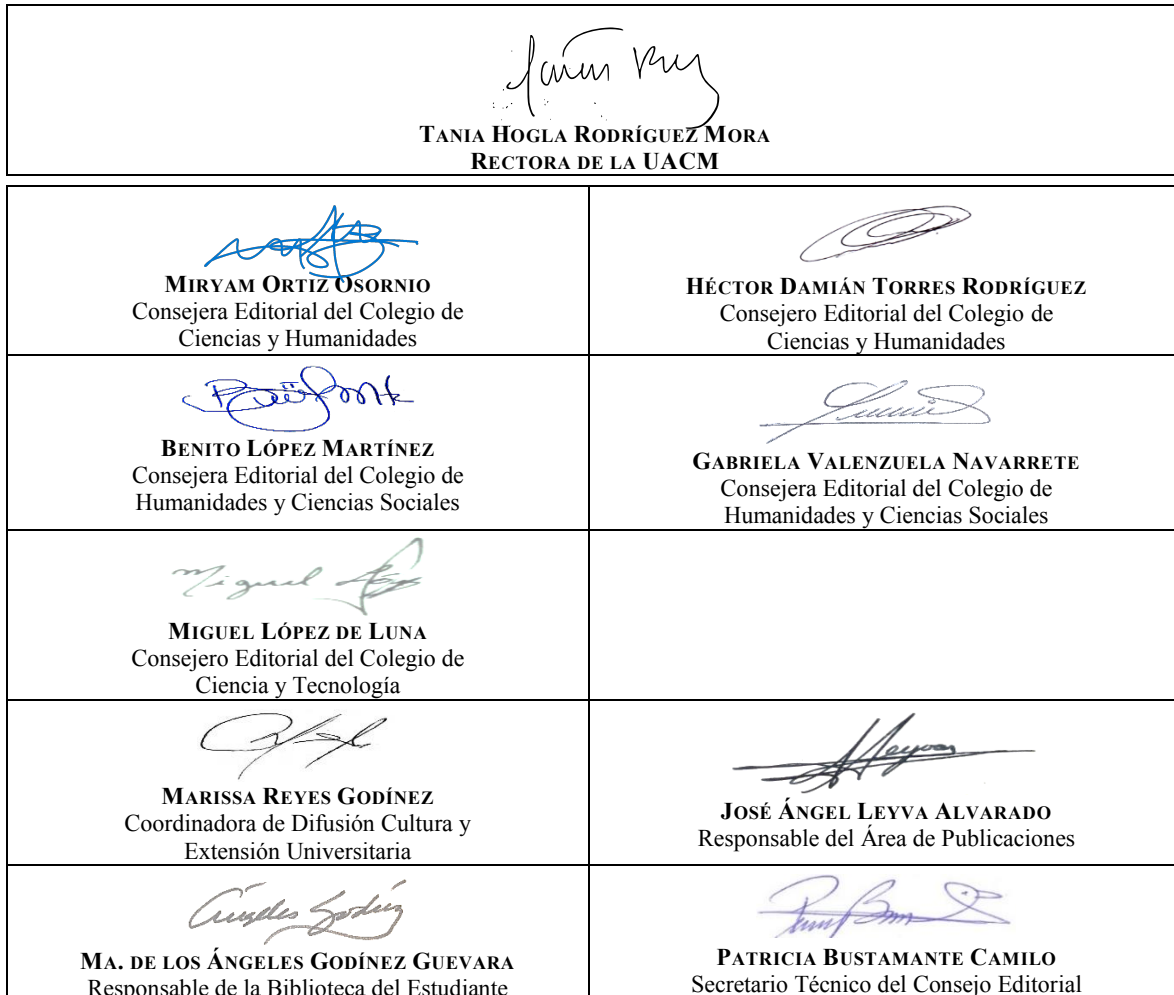 TANIA HOGLA RODRÍGUEZ MORA
RECTORA DE LA UACM
MIRYAM ORTIZ OSORNIO
Consejera Editorial del Colegio de
Ciencias y Humanidades
HÉCTOR DAMIÁN TORRES RODRÍGUEZ
Consejero Editorial del Colegio de
Ciencias y Humanidades
BENITO LÓPEZ MARTÍNEZ
Consejera Editorial del Colegio de
Humanidades y Ciencias Sociales
GABRIELA VALENZUELA NAVARRETE
Consejera Editorial del Colegio de
Humanidades y Ciencias Sociales
Miguel
MIGUEL LÓPEZ DE LUNA
Consejero Editorial del Colegio de
Ciencia y Tecnología
MARISSA REYES GODÍNEZ
Coordinadora de Difusión Cultura y
Extensión Universitaria
JOSÉ ÁNGEL LEYVA ALVARADO
Responsable del Área de Publicaciones
Ángeles Godínez
MA. DE LOS ÁNGELES GODÍNEZ GUEVARA
Responsable de la Biblioteca del Estudiante
PATRICIA BUSTAMANTE CAMILO
Secretario Técnico del Consejo Editorial